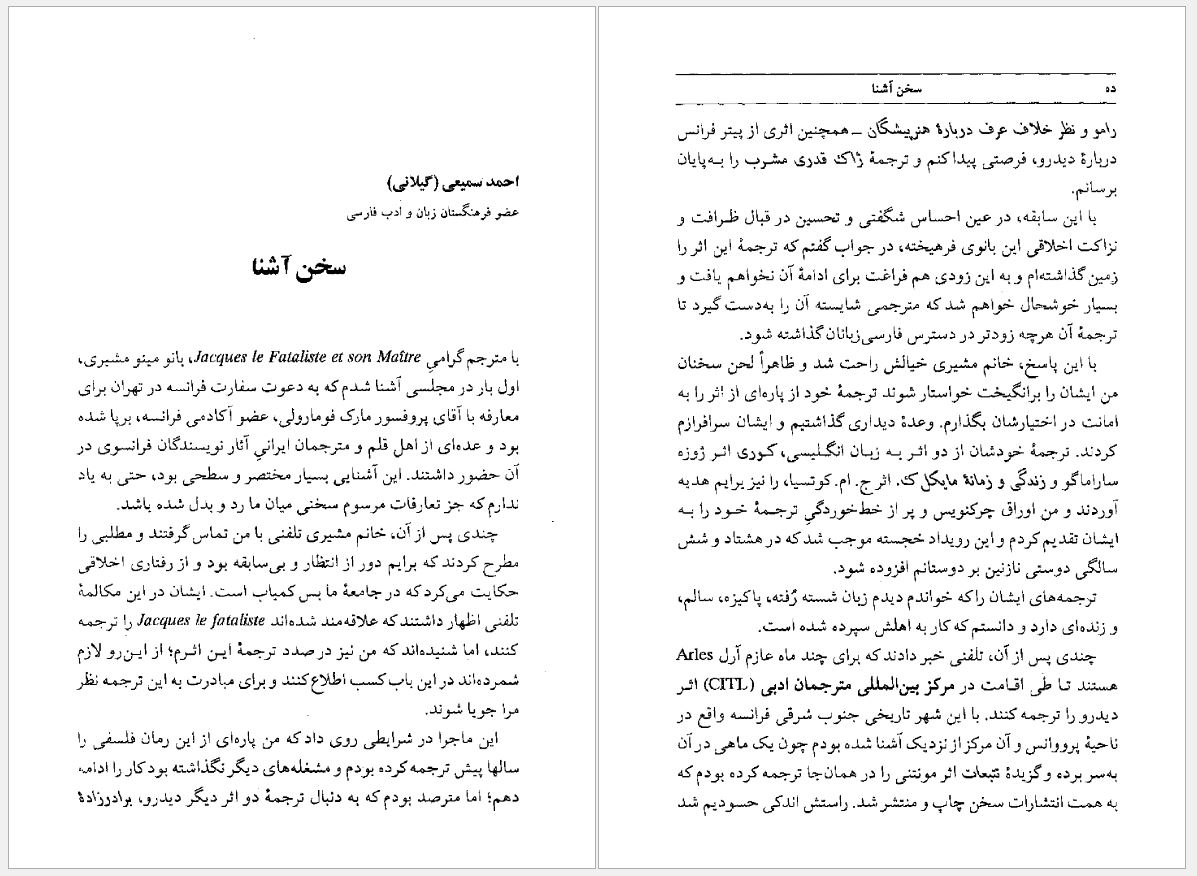 احمد سمیعی (گیلانی)
عضو فرهنگستان زبان و ادب فارسی
سخن آشنا
با مترجم گرامیِ Jacques le Fataliste et son Maître، بانو مینو مشیری،
اول بار در مجلسی آشنا شدم که به دعوت سفارت فرانسه در تهران برای
معارفه با آقای پروفسور مارک فومارولی، عضو آکادمی فرانسه، برپا شده
بود و عده‌ای از اهل قلم و مترجمان ایرانیِ آثار نویسندگان فرانسوی در
آن حضور داشتند. این آشنایی بسیار مختصر و سطحی بود، حتی به یاد
ندارم که جز تعارفات مرسوم سخنی میان ما رد و بدل شده باشد.
چندی پس از آن، خانم مشیری تلفنی با من تماس گرفتند و مطلبی را
مطرح کردند که برایم دور از انتظار و بی‌سابقه بود و از رفتاری اخلاقی
حکایت می‌کرد که در جامعهٔ ما بس کمیاب است. ایشان در این مکالمهٔ
تلفنی اظهار داشتند که علاقه‌مند شده‌اند Jacques le fataliste را ترجمه
کنند، اما شنیده‌اند که من نیز در صدد ترجمهٔ این اثرم؛ از این‌رو لازم
شمرده‌اند در این باب کسب اطلاع کنند و برای مبادرت به این ترجمه نظر
مرا جویا شوند.
این ماجرا در شرایطی روی داد که من پاره‌ای از این رمان فلسفی را
سالها پیش ترجمه کرده بودم و مشغله‌های دیگر نگذاشته بود کار را ادامه
دهم؛ اما مترصد بودم که به دنبال ترجمهٔ دو اثر دیگر دیدرو، برادرزادهٔ
ده
سخن آشنا
رامو و نظر خلاف عرف دربارهٔ هنرپیشگان – همچنین اثری از پیتر فرانس
دربارهٔ دیدرو، فرصتی پیدا کنم و ترجمهٔ ژاک قدری مشرب را به‌پایان
برسانم.
با این سابقه، در عین احساس شگفتی و تحسین در قبال ظرافت و
نزاکت اخلاقی این بانوی فرهیخته، در جواب گفتم که ترجمهٔ این اثر را
زمین گذاشته‌ام و به این زودی هم فراغت برای ادامهٔ آن نخواهم یافت و
بسیار خوشحال خواهم شد که مترجمی شایسته آن را به‌دست گیرد تا
ترجمهٔ آن هرچه زودتر در دسترس فارسی‌زبانان گذاشته شود.
با این پاسخ، خانم مشیری خیالش راحت شد و ظاهراً لحن سخنان
من ایشان را برانگیخت خواستار شوند ترجمهٔ خود از پاره‌ای از اثر را به
امانت در اختیارشان بگذارم. وعدهٔ دیداری گذاشتیم و ایشان سرافرازم
کردند. ترجمهٔ خودشان از دو اثر به زبان انگلیسی، کوری اثر ژوزه
ساراماگو و زندگی و زمانهٔ مایکل ک. اثر ج. ام. کوتسیا، را نیز برایم هدیه
آوردند و من اوراق چرکنویس و پر از خط‌خوردگیِ ترجمهٔ خود را به
ایشان تقدیم کردم و این رویداد خجسته موجب شد که در هشتاد و شش
سالگی دوستی نازنین بر دوستانم افزوده شود.
ترجمه‌های ایشان را که خواندم دیدم زبان شسته رُفته، پاکیزه، سالم،
و زنده‌ای دارد و دانستم که کار به اهلش سپرده شده است.
چندی پس از آن، تلفنی خبر دادند که برای چند ماه عازم آرل Arles
هستند تا طی اقامت در مرکز بین‌المللی مترجمان ادبی (CITL) اثر
دیدرو را ترجمه کنند. با این شهر تاریخی جنوب شرقی فرانسه واقع در
ناحیهٔ پرووانس و آن مرکز از نزدیک آشنا شده بودم چون یک ماهی در آن
به‌سر برده و گزیدهٔ تتبعات اثر مونتنی را در همان‌جا ترجمه کرده بودم که
به همت انتشارات سخن چاپ و منتشر شد. راستش اندکی حسودیم شد